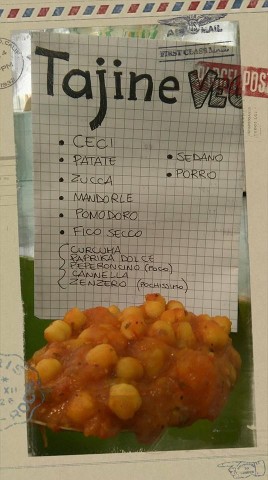 AIR MAIL
FIRST CLASS MAIL
Tajine VEG
PARCEL POST
• CECI
• PATATE
• ZUCCA
• MANDORLE
• POMODORO
• FICO SECCO
• SEDANO
• PORRO
CURCUMA
PAPRIKA DOLCE
PEPERONCINO (POCO)
CANNELLA
ZENZERO (POCHISSIMO)
XII